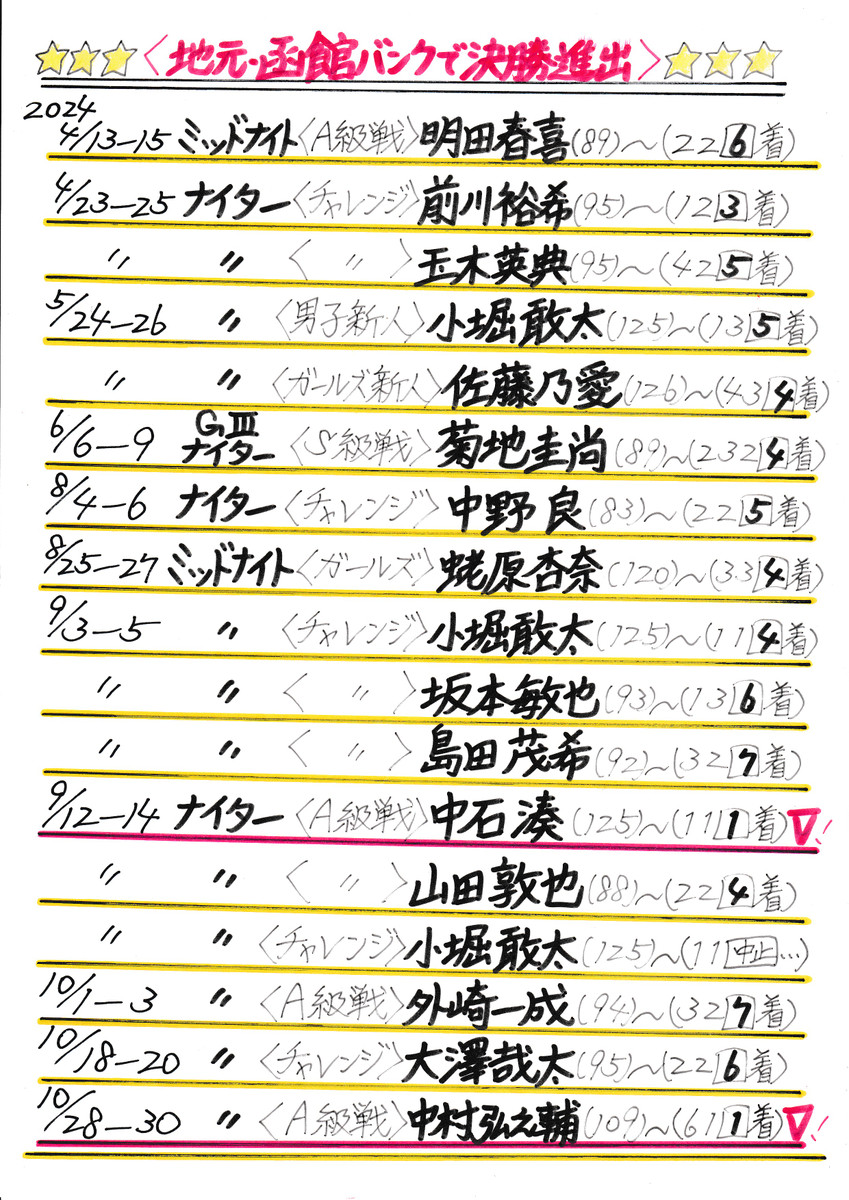 〈地元・函館バンクで決勝進出〉
2024
4/13-15 ミッドナイト〈A級戦〉明田春喜(89)～(226着)
4/23-25 ナイター〈チャレンジ〉前川裕希(95)～(123着)
〃 〃 〈 〃 〉玉木英典(95)～(425着)
5/24-26 〃 〈男子新人〉小堀敢太(125)～(135着)
〃 〃 〈ガールズ新人〉佐藤乃愛(126)～(434着)
6/6-9 GⅢナイター〈S級戦〉菊地圭尚(89)～(2324着)
8/4-6 ナイター〈チャレンジ〉中野良(83)～(225着)
8/25-27 ミッドナイト〈ガールズ〉蛯原杏奈(120)～(334着)
9/3-5 〃 〈チャレンジ〉小堀敢太(125)～(114着)
〃 〃 〈 〃 〉坂本敏也(93)～(136着)
〃 〃 〈 〃 〉島田茂希(92)～(327着)
9/12-14 ナイター〈A級戦〉中石湊(125)～(111着)▽!
〃 〃 〈 〃 〉山田敦也(88)～(224着)
〃 〃 〈チャレンジ〉小堀敢太(125)～(11中止…)
10/1-3 〃 〈A級戦〉外崎一成(94)～(327着)
10/18-20 〃 〈チャレンジ〉大澤哉太(95)～(226着)
10/28-30 〃 〈A級戦〉中村弘之輔(109)～(611着)▽!